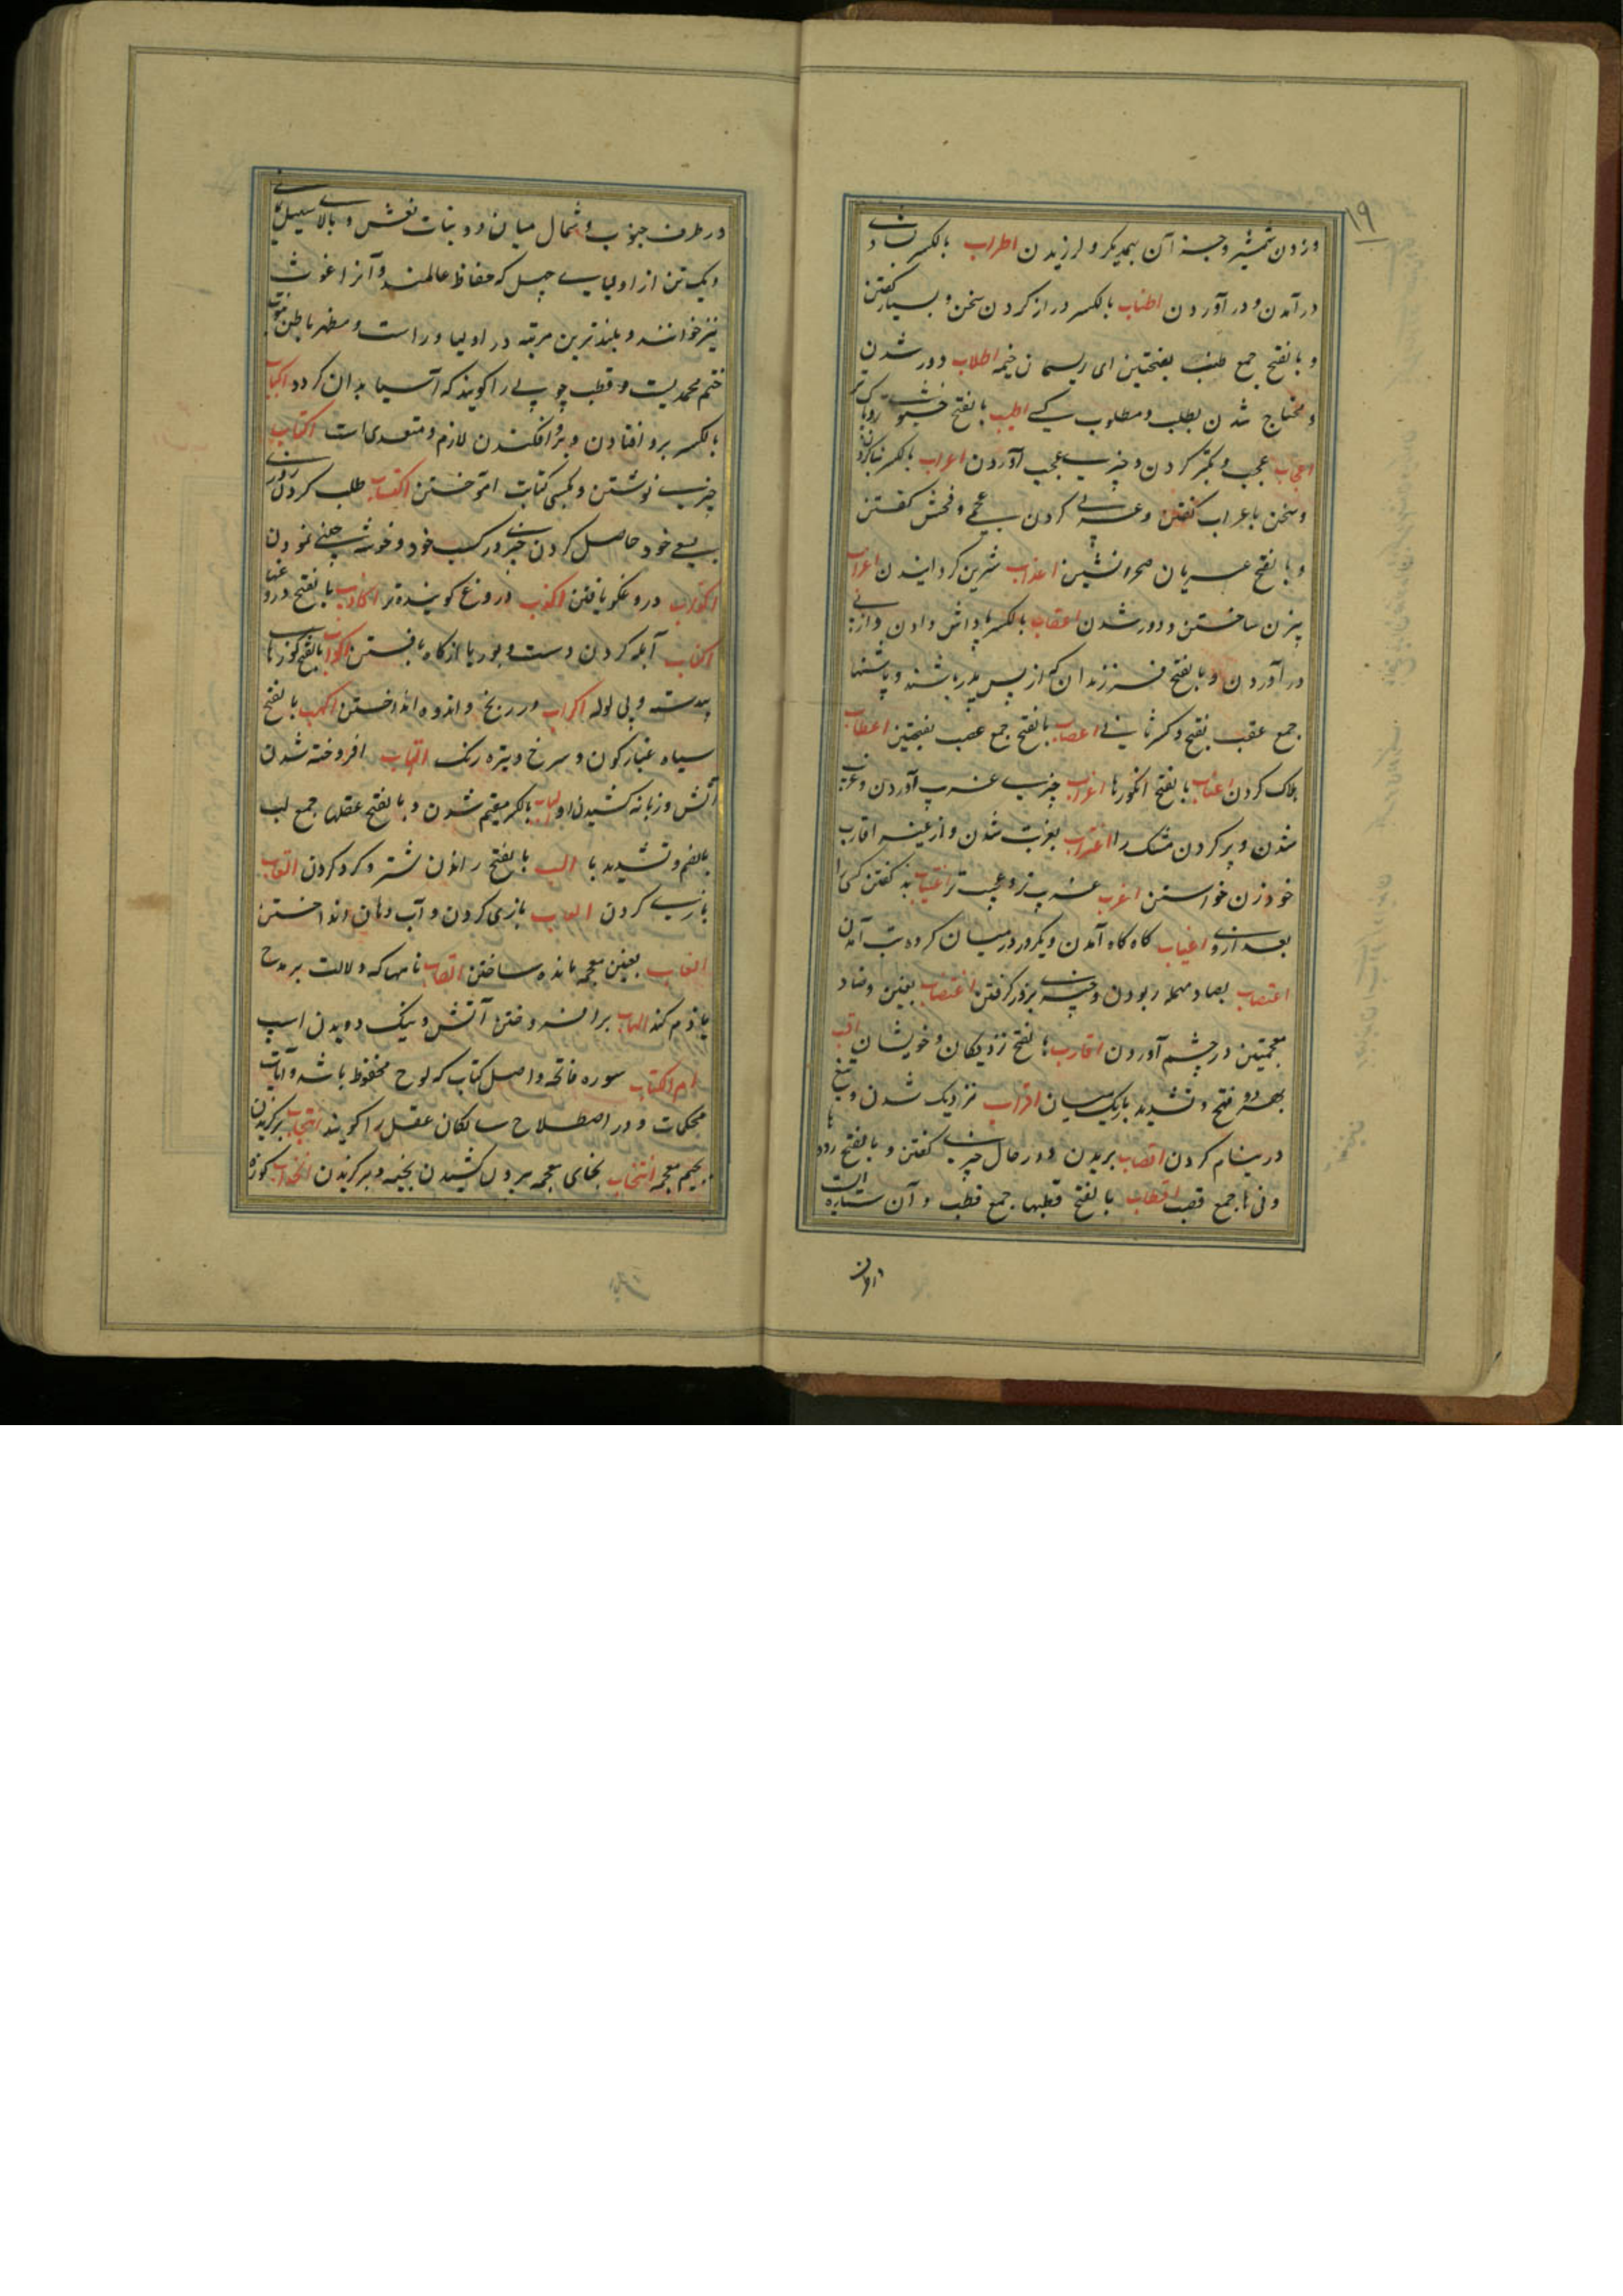 ۱۹
وزدن شمشیر و جز آن بهمدیگر و لرزیدن اطراب بالکسر شادی
درآمدن و درآوردن اطناب بالکسر دراز کردن سخن و بسیار گفتن
و بالفتح جمع طنب بفتحتین ای ریسمان خیمه اطلاب دور شدن
و محتاج شدن بطلب و مطلوب کسی اطیب بالفتح خوشبوی تر
اعجاب عجب و تکبر کردن و چیزی عجیب آوردن اعراب بالکسر
و سخن باعراب گفتن و عربی کردن عجمی و فحش گفتن
و بالفتح عربان صحرانشین اعذاب شیرین گردانیدن اعزاب
بیزن ساختن و دور شدن اعقاب بالکسر پاداش دادن و از پی
درآوردن و بالفتح فرزندان که از پس پدر باشند و پاشنها
جمع عقب بفتح و کسر ثانی اعصاب بالفتح جمع عصب بفتحتین اعطاب
هلاک کردن اعناب بالفتح انگورها اغراب چیزی غریب آوردن و غریب
شدن و پر کردن مشک را اغتراب بغربت شدن و از غیر اقارب
خود زن خواستن اغرب غریب تر و عجیب تر اغتیاب بد گفتن کسی را
بعد از وی اغیاب گاه گاه آمدن و یکروز در میان کرده تب آمدن
اغتصاب بصاد مهمله ربودن و چیزی بزور گرفتن اغتضاب بغین و ضاد
معجمتین در چشم آوردن اقارب بفتح نزدیکان و خویشان اقب
بهر دو فتح و تشدید باریک میان اقراب نزدیک شدن و تیغ
در نیام کردن اقتضاب بریدن و در حال چیزی گفتن و بالفتح روده ها
و نی ها جمع قصب اقطاب بالفتح قطبها جمع قطب و آن ستاره است
در طرف
در طرف جنوب و شمال میان دو بنات نعش و بالای سبیل
و یک تن از اولیای چهل که حفاظ عالمند و آنرا غوث
نیز خوانند و بلندترین مرتبه در اولیا وراست و مظهر باطن نبوت
ختم محمدیست و قطب چوبی را گویند که آسیا بدان گردد اکباب
بالکسر برو افتادن و برو افکندن لازم و متعدی است اکتتاب
چیزی نوشتن و بکسی کتابت آموختن اکتساب طلب کردن روزی
بسعی خود حاصل کردن چیزی و در کسب خود و خوشه چینی نمودن
اکذاب دروغگو یافتن اکذب دروغ گوینده تر اکاذیب بالفتح دروغها
اکناب آبله کردن دست و بوریا از کاه بافتن اکواب بالفتح کوزها
بیدسته و بی لوله اکراب در رنج و اندوه انداختن اکهب بالفتح
سیاه غبارگون و سرخ و تیره رنک التهاب افروخته شدن
آتش و زبانه کشیدن او الباب بالکسر مقیم شدن و بالفتح عقلها جمع لب
بالضم و تشدید با الب بالفتح راندن شتر و گرد کردن العاب
بازی کردن العاب بازی کردن و آب دهان انداختن
الغاب بغین معجمه مانده ساختن القاب نامها که دلالت بر مدح
یا ذم کند الهاب برافروختن آتش و نیک دویدن اسپ
ام الکتاب سوره فاتحه و اصل کتاب که لوح محفوظ باشد و آیات
محکمات و در اصطلاح سالکان عقل را گویند انتجاب برگزیدن
بجیم معجمه انتخاب بخای معجمه بیرون کشیدن نخبه و برگزیدن انخاب کوزه